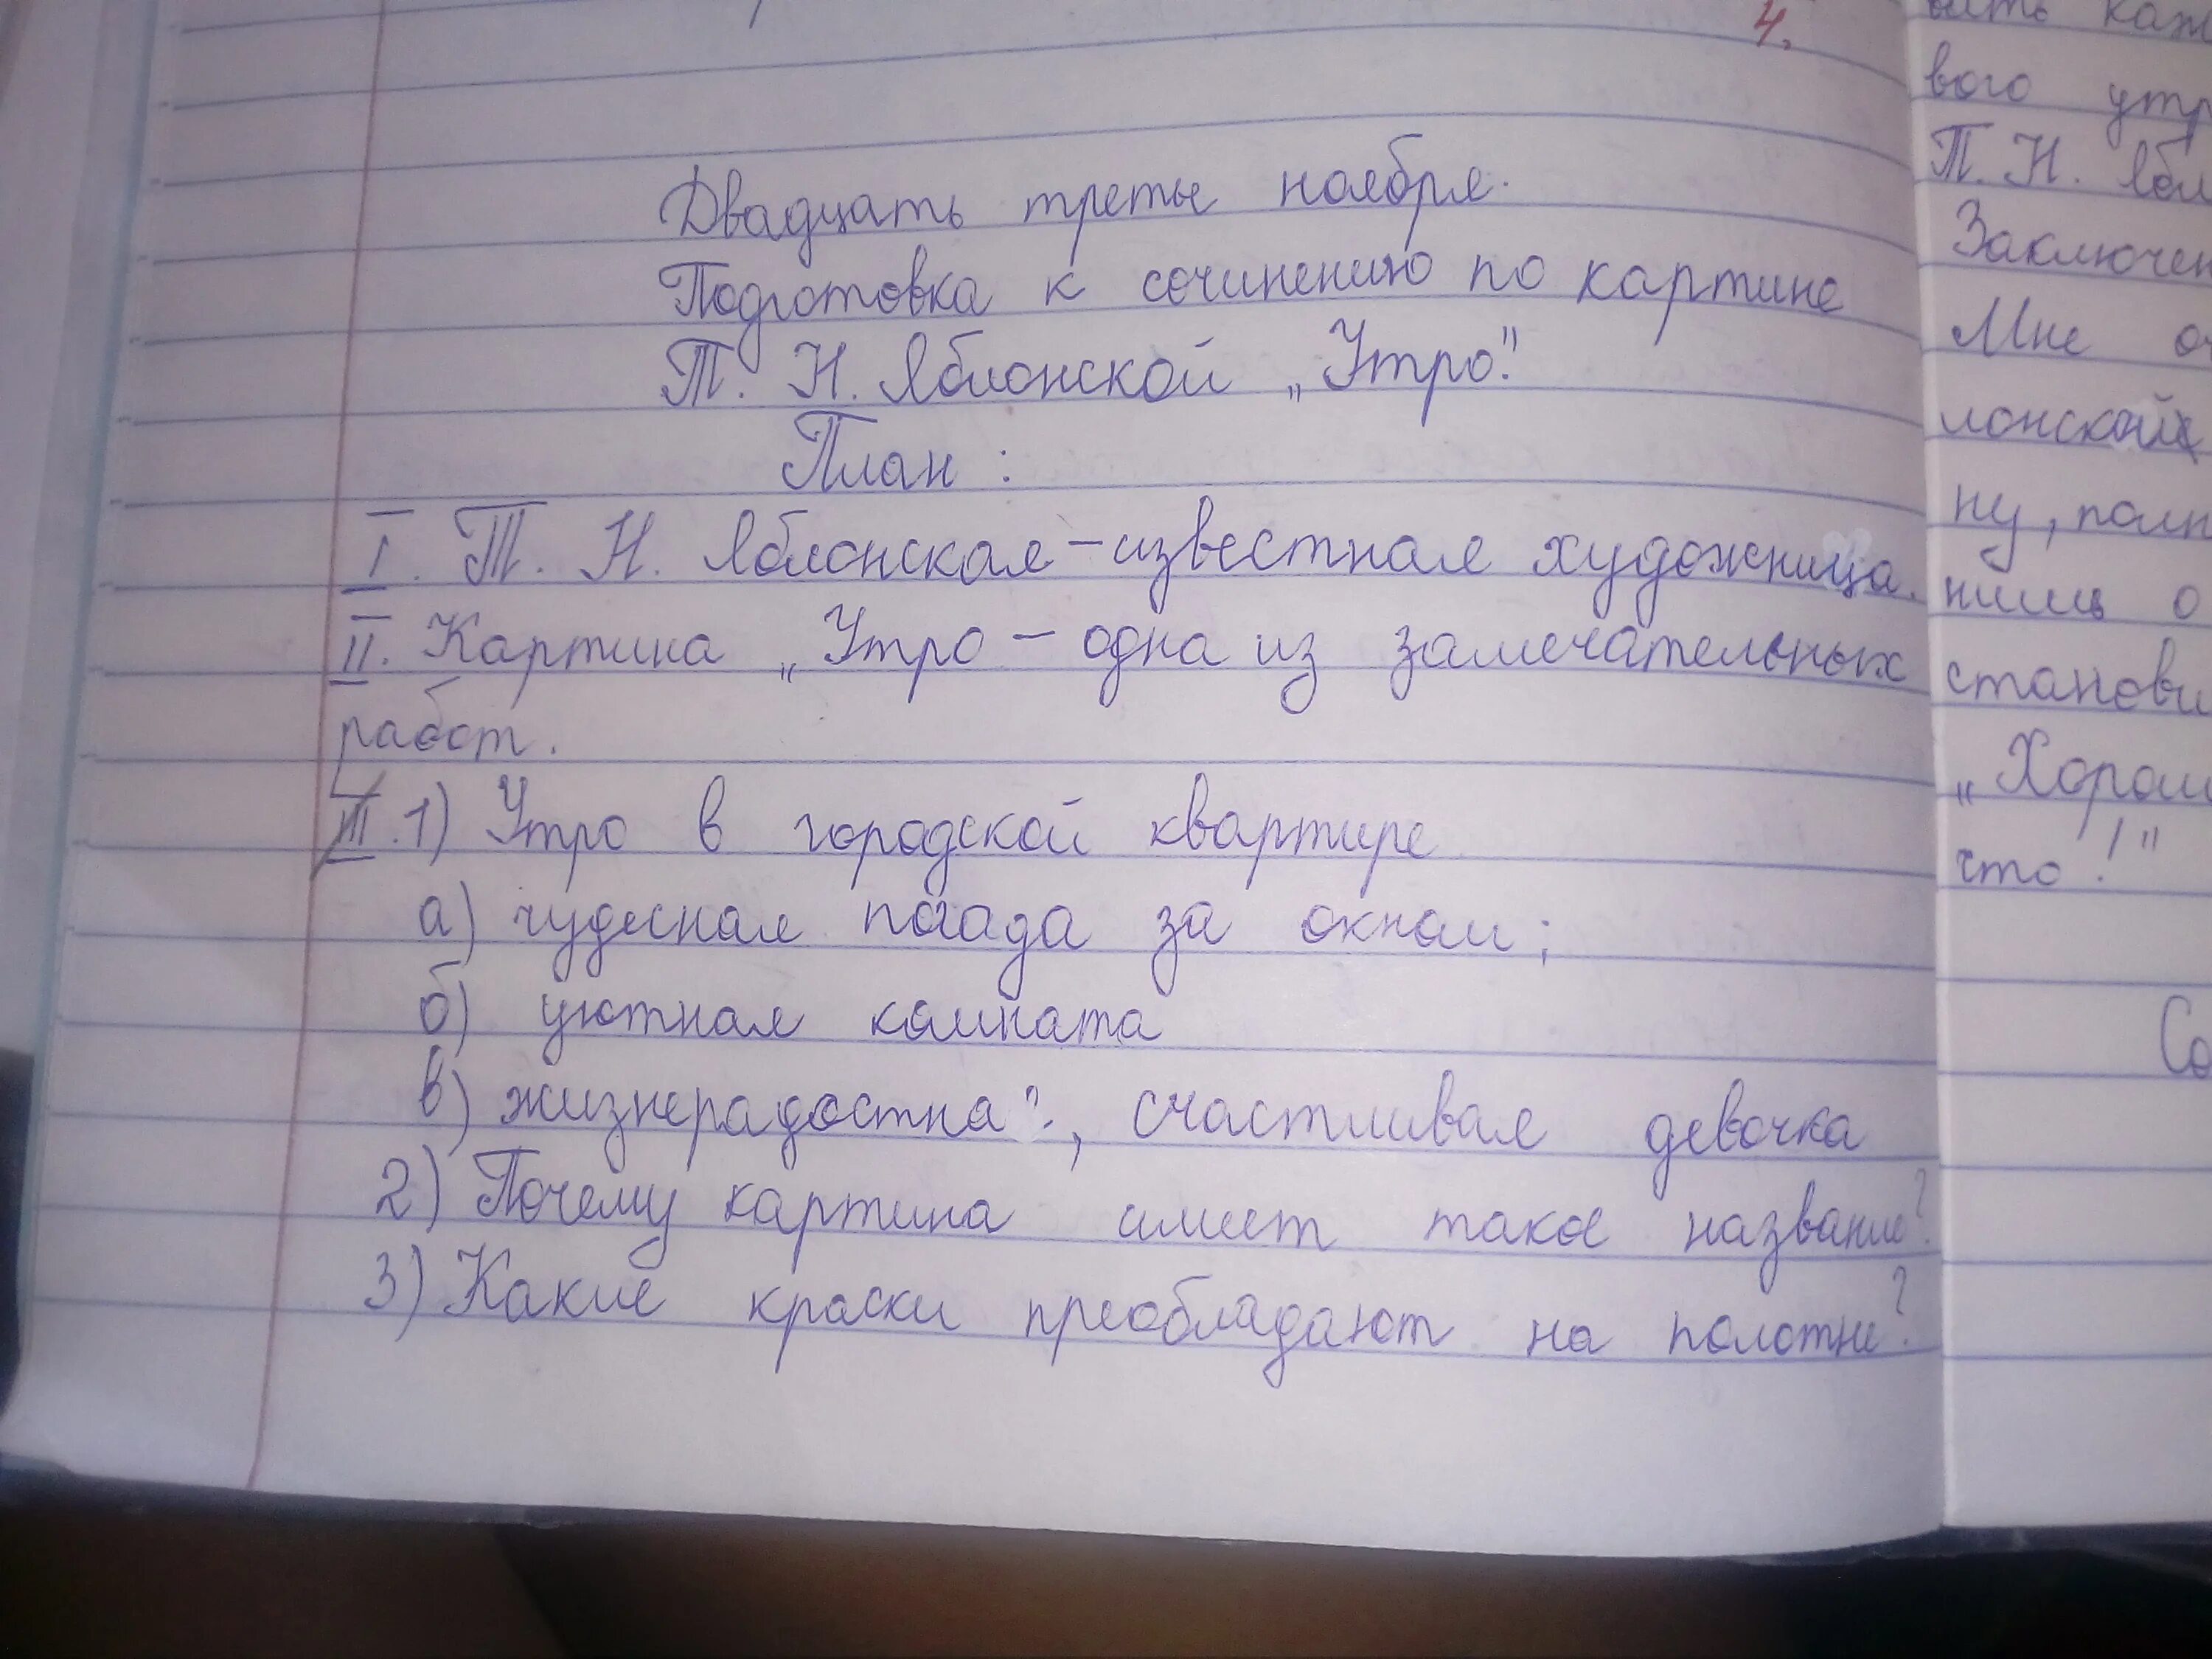 4.
Двадцать третье ноября.
Подготовка к сочинению по картине
Т. Н. Яблонской „Утро".
План:
I. Т. Н. Яблонская – известная художница.
II. Картина „Утро – одна из замечательных
работ.
III. 1) Утро в городской квартире
а) чудесная погода за окном;
б) уютная комната
в) жизнерадостна, счастливая девочка
2) Почему картина имеет такое название?
3) Какие краски преобладают на полотне?
вого утр
Т. Н. Ябл
Заключен
Мне оч
лонской
ну, полн
ним о
станови
„Хорош
что!"
Со